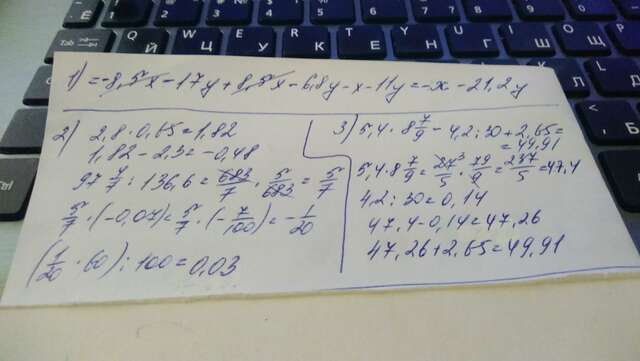 1) = -8,5x - 17y + 8,5x - 6,8y - x - 11y = -x - 21,2y
2) 2,8 · 0,65 = 1,82
1,82 - 2,3 = -0,48
97 4/7 : 136,6 = 683/7 · 5/683 = 5/7
5/7 · (-0,07) = 5/7 · (-7/100) = -1/20
(1/20 · 60) : 100 = 0,03
3) 5,4 · 8 7/9 - 4,2 : 30 + 2,65 =
= 49,91
5,4 · 8 7/9 = 27³/5 · 79/9 = 237/5 = 47,4
4,2 : 30 = 0,14
47,4 - 0,14 = 47,26
47,26 + 2,65 = 49,91